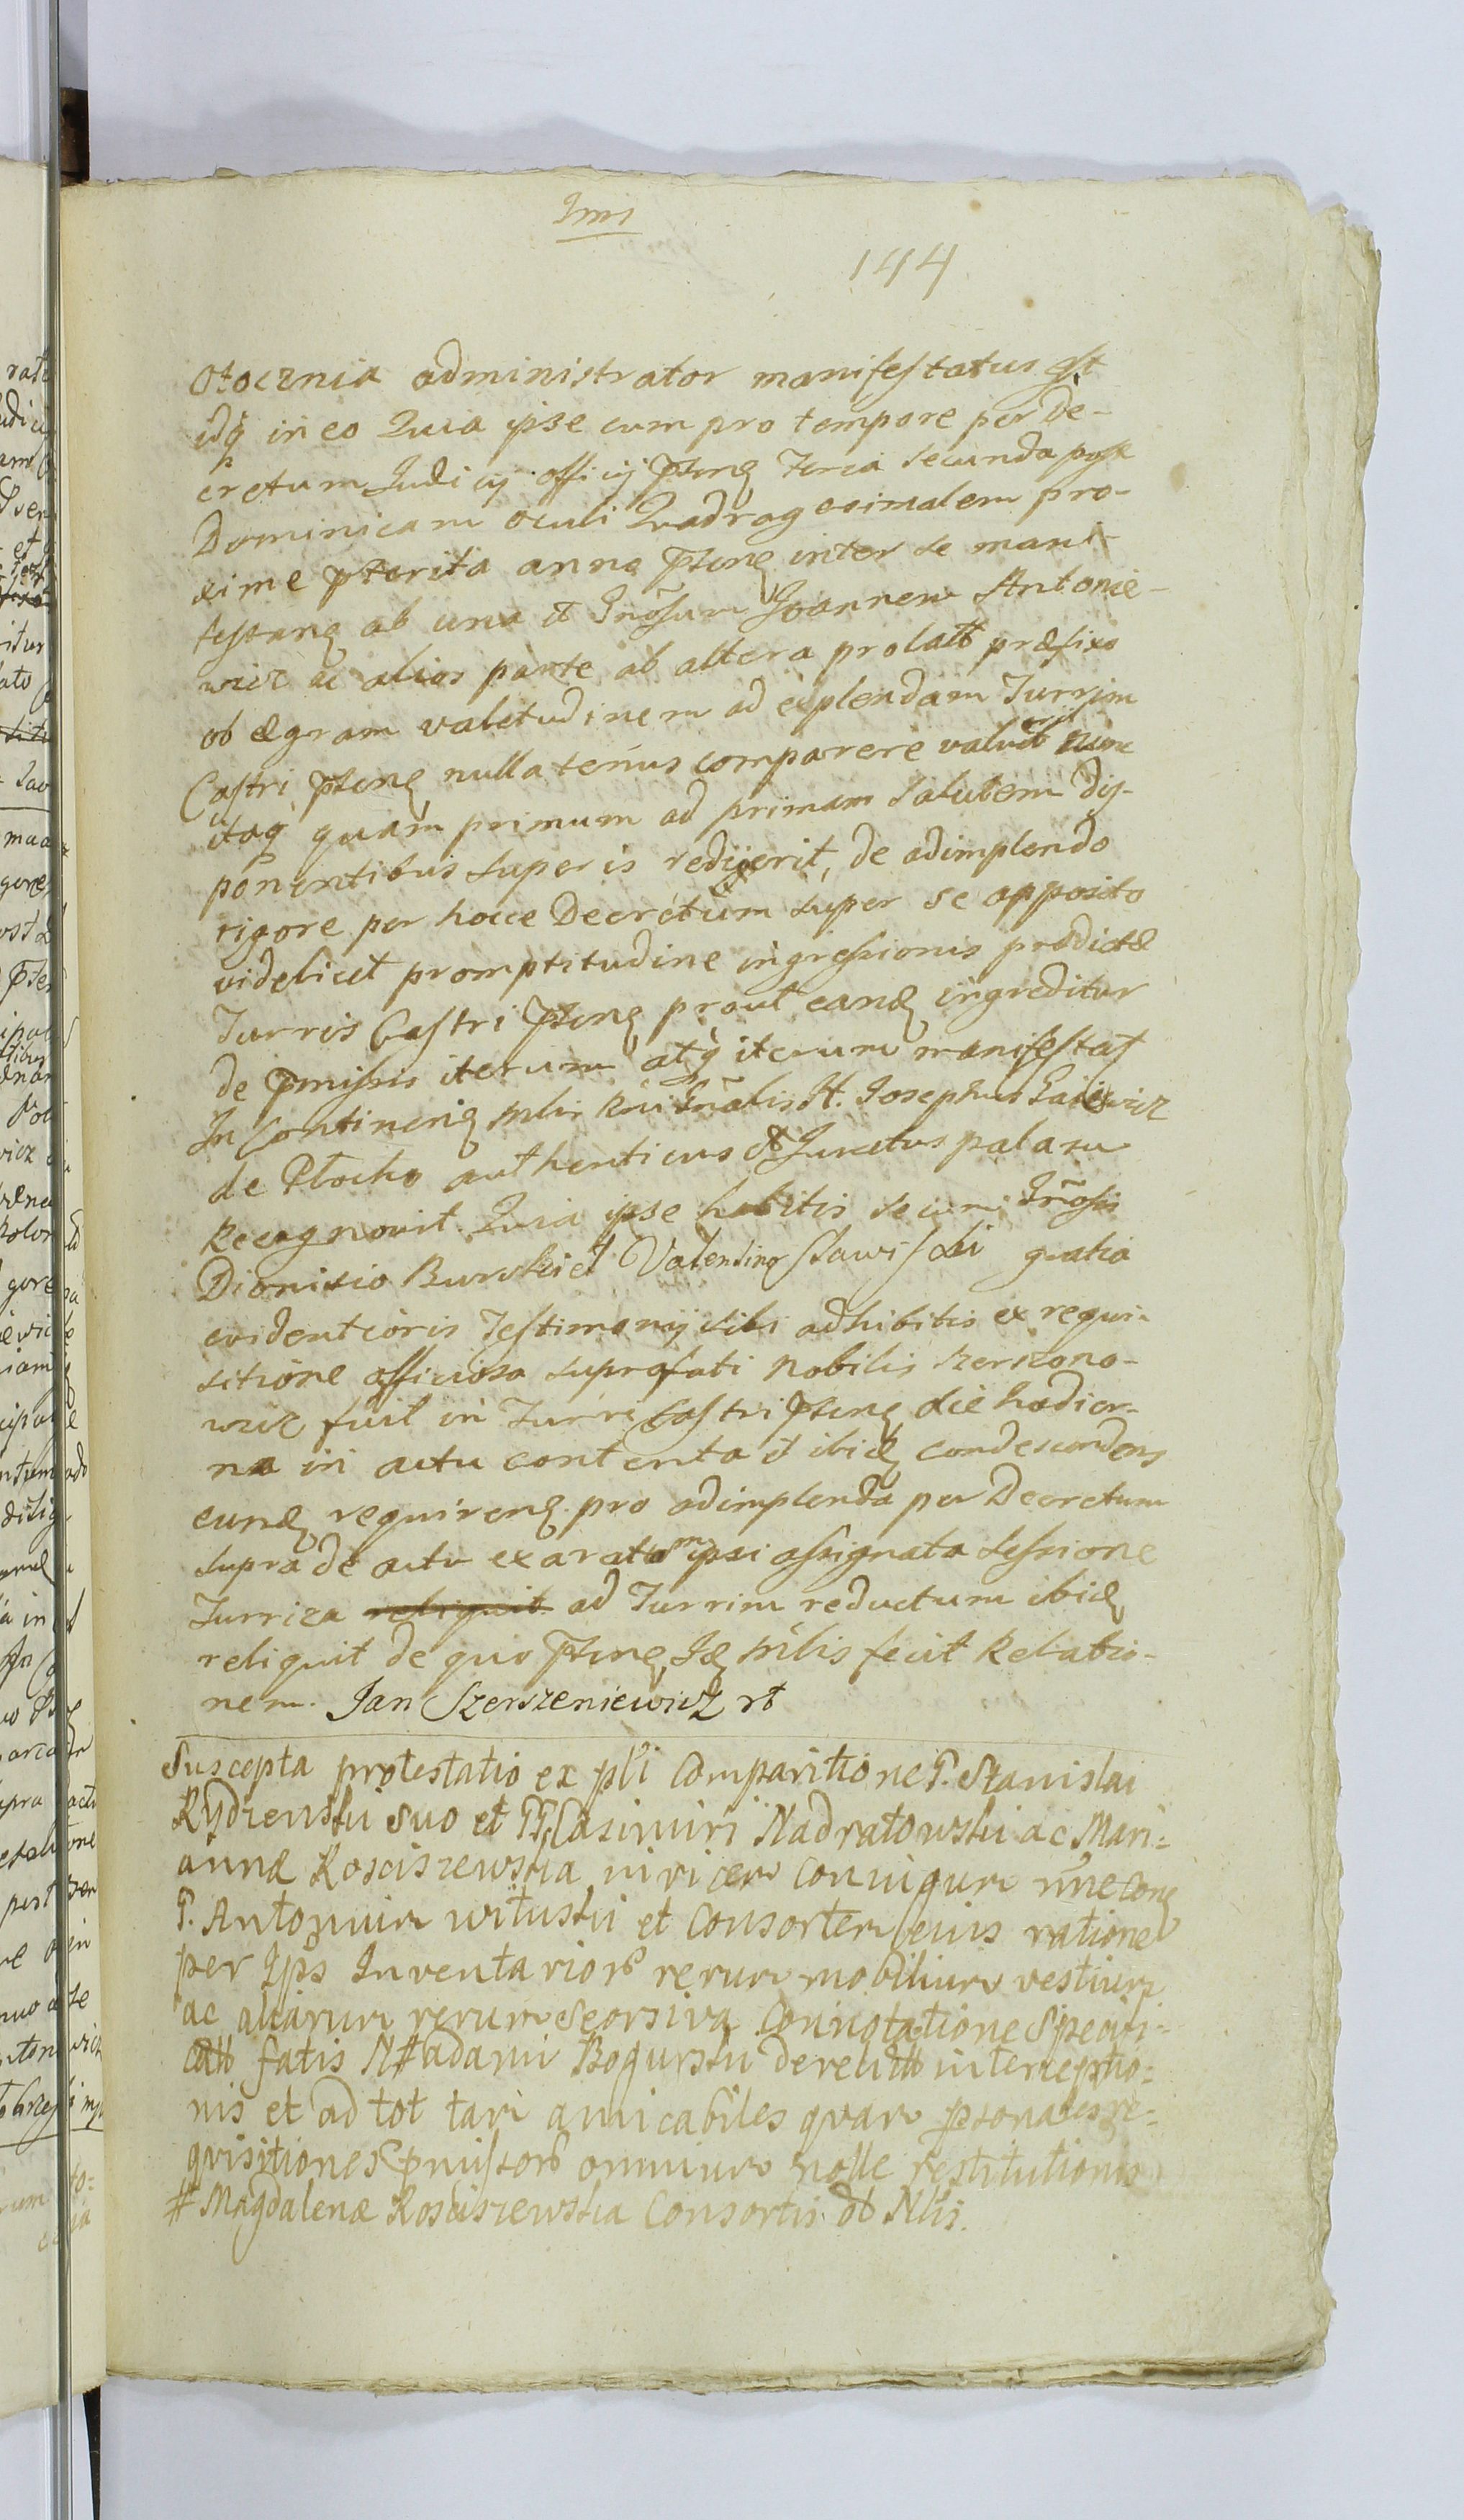 144
Otocznia administrator manifestatus est
idq in eo Quia ipse cum pro tempore per De-
cretum Judicij officij pstnq Feria secunda post
Dominicam Oculi Quadragesimalem pro-
xime pterita anno pstnq inter se mani-
festanq ab una et Ingosum Joannem Antonie-
wicz ac alios parte ab altera prolato præfixo
ob ægram valetudinem ad explendam Turrim
Castri pstnq nullatenus comparere valuit nunc
itaq quam primum ad primam salutem dis-
ponentibus superis redijerit, de adimplendo
rigore per hocce Decretum super se apposito
videlicet promptitudine ingressionis prædictæ
Turris Castri pstnq prout eandq ingreditur
de pmissis iterum atq iterum manifestat
In Continenq Mlis Rni Gnalis H. Josephus
de Plocko authenticus et Juratus palam
Recognovit Quia ipse habitis secum Ingosis
Dionisio Burski et Valentino Sławiski gratia
evidentioris Testimonij sibi adhibitis ex requi-
sitione officiosa suprafati Nobilis Szerszono-
wicz fuit in Turri Castri pstnq die hodier-
na in actu contenta et ibidq condescendens
eundq requirenq pro adimplenda per Decretum
supra de actu exaratum ipsi assignata sessione
Turrica reliquit ad Turrim reductum ibidq
reliquit de quo pstnq Idq Mlis fecit Relatio-
nem. Jan Szerszeniewicz rt
Suscepta protestatio ex pli Comparitione G. Stanislai
Rydzenski suo et GG Casimiri Nadratowski ac Mari=
annæ Kosciszewska conjugum nne Conq
G. Antonium Witulski et Consortem eius ratione
per Ips Inventarior rerum mobilium vestium
ac aliarum rerum seorsiva Connotatione Specifi=
catt fatis N# adami Bogurski derelictt interceptio=
nis et ad tot tam amicabiles quam psonales re=
quisitiones pmissor omnium nolle restitutionis
# Magdalenæ Kosciszewska Consortis ob Nlis.